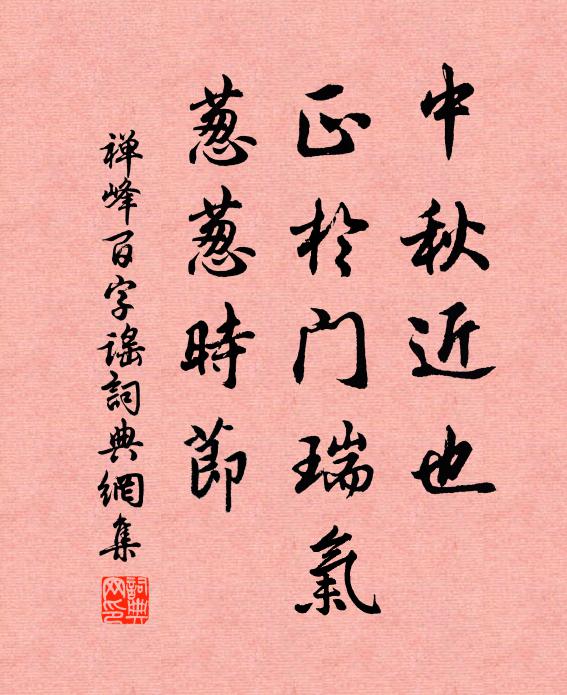 中秋近也
正於门瑞氣
葱葱時節
禅峰百字谣詞典網集
詞典网印